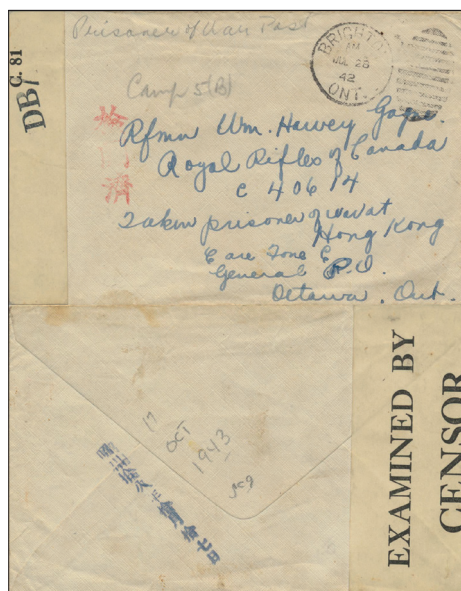 Prisoner of War Post
C. 81
DB/
BRIGHTON
PM
JUL 28
42
ONT.
Camp 5(B)
Rfmn Wm. Harvey
Royal Rifles of Canada
C 40614
Taken prisoner of war at
Hong Kong
General P.O.
Ottawa. Ont.
17
OCT
1943
EXAMINED BY
CENSOR